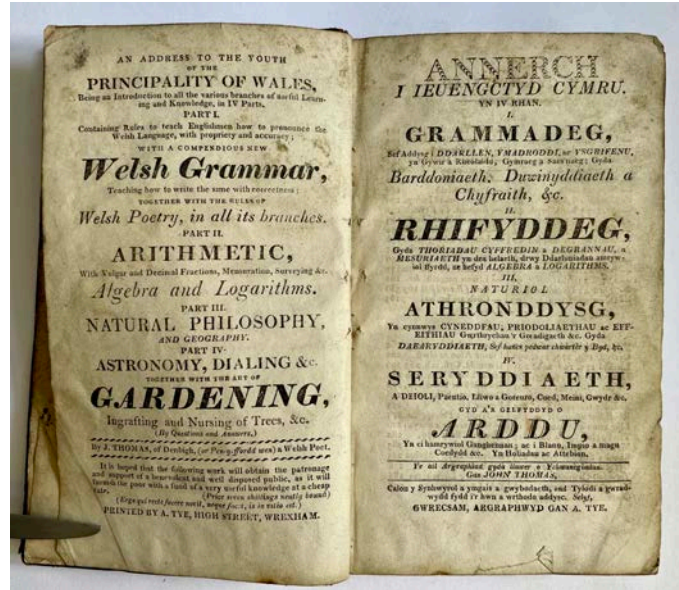 AN ADDRESS TO THE YOUTH
OF THE
PRINCIPALITY OF WALES,
Being an Introduction to all the various branches of useful Learn-
ing and Knowledge, in IV Parts.
PART I.
Containing Rules to teach Englishmen how to pronounce the
Welsh Language, with propriety and accuracy;
WITH A COMPENDIOUS NEW
Welsh Grammar,
Teaching how to write the same with correctness;
TOGETHER WITH THE RULES OF
Welsh Poetry, in all its branches.
PART II.
ARITHMETIC,
With Vulgar and Decimal Fractions, Mensuration, Surveying &c.
Algebra and Logarithms.
PART III.
NATURAL PHILOSOPHY,
AND GEOGRAPHY.
PART IV.
ASTRONOMY, DIALING &c.
TOGETHER WITH THE ART OF
GARDENING,
Ingrafting and Nursing of Trees, &c.
(By Questions and Answers,)
By J. THOMAS, of Denbigh, (or Pen-y-ffordd wen) a Welsh Poet.
It is hoped that the following work will obtain the patronage
and support of a benevolent and well disposed public, as it will
furnish the poor with a fund of a very useful knowledge at a cheap
rate. (Price seven shillings neatly bound)
(Ergo qui recte facere novit, neque facit, is in vitio est.)
PRINTED BY A. TYE, HIGH STREET, WREXHAM.
ANNERCH
I IEUENGCTYD CYMRU.
YN IV RHAN.
I.
GRAMMADEG,
Sef Addysg i DDARLLEN, YMADRODDI, ac YSGRIFENU,
yn Gywir a Rheolaidd, Cymraeg a Saesnaeg; Gyda
Barddoniaeth, Duwinyddiaeth a
Chyfraith, &c.
II.
RHIFYDDEG,
Gyda THORIADAU CYFFREDIN a DEGRANNAU, a
MESURIAETH yn dra helaeth, drwy Ddarluniadau amryw-
iol ffyrdd, ac hefyd ALGEBRA a LOGARITHMS.
III.
NATURIOL
ATHRONDDYSG,
Yn cynnwys CYNEDDFAU, PRIODOLIAETHAU ac EFF-
EITHIAU Gwrthrychau'r Greadigaeth &c. Gyda
DAEARYDDIAETH, Sef hanes pedwar chwarter y Byd, &c.
IV.
SERYDDIAETH,
A DEIOLI, Paentio, Lliwo a Goreuro, Coed, Meini, Gwydr &c.
GYD A'R GELFYDDYD O
ARDDU,
Yn ei hamrywiol Ganghennau; ac i Blanu, Impio a magu
Coedydd &c. Yn Holiadau ac Attebion.
Yr ail Argraphiad gyda llawer o Ychwanegiadau.
Gan JOHN THOMAS,
Calon y Synhwyrol a ymgais a gwybodaeth, ond Tylodi a gwrad-
wydd fydd i'r hwn a wrthodo addysg. Selyf,
GWRECSAM, ARGRAPHWYD GAN A. TYE.